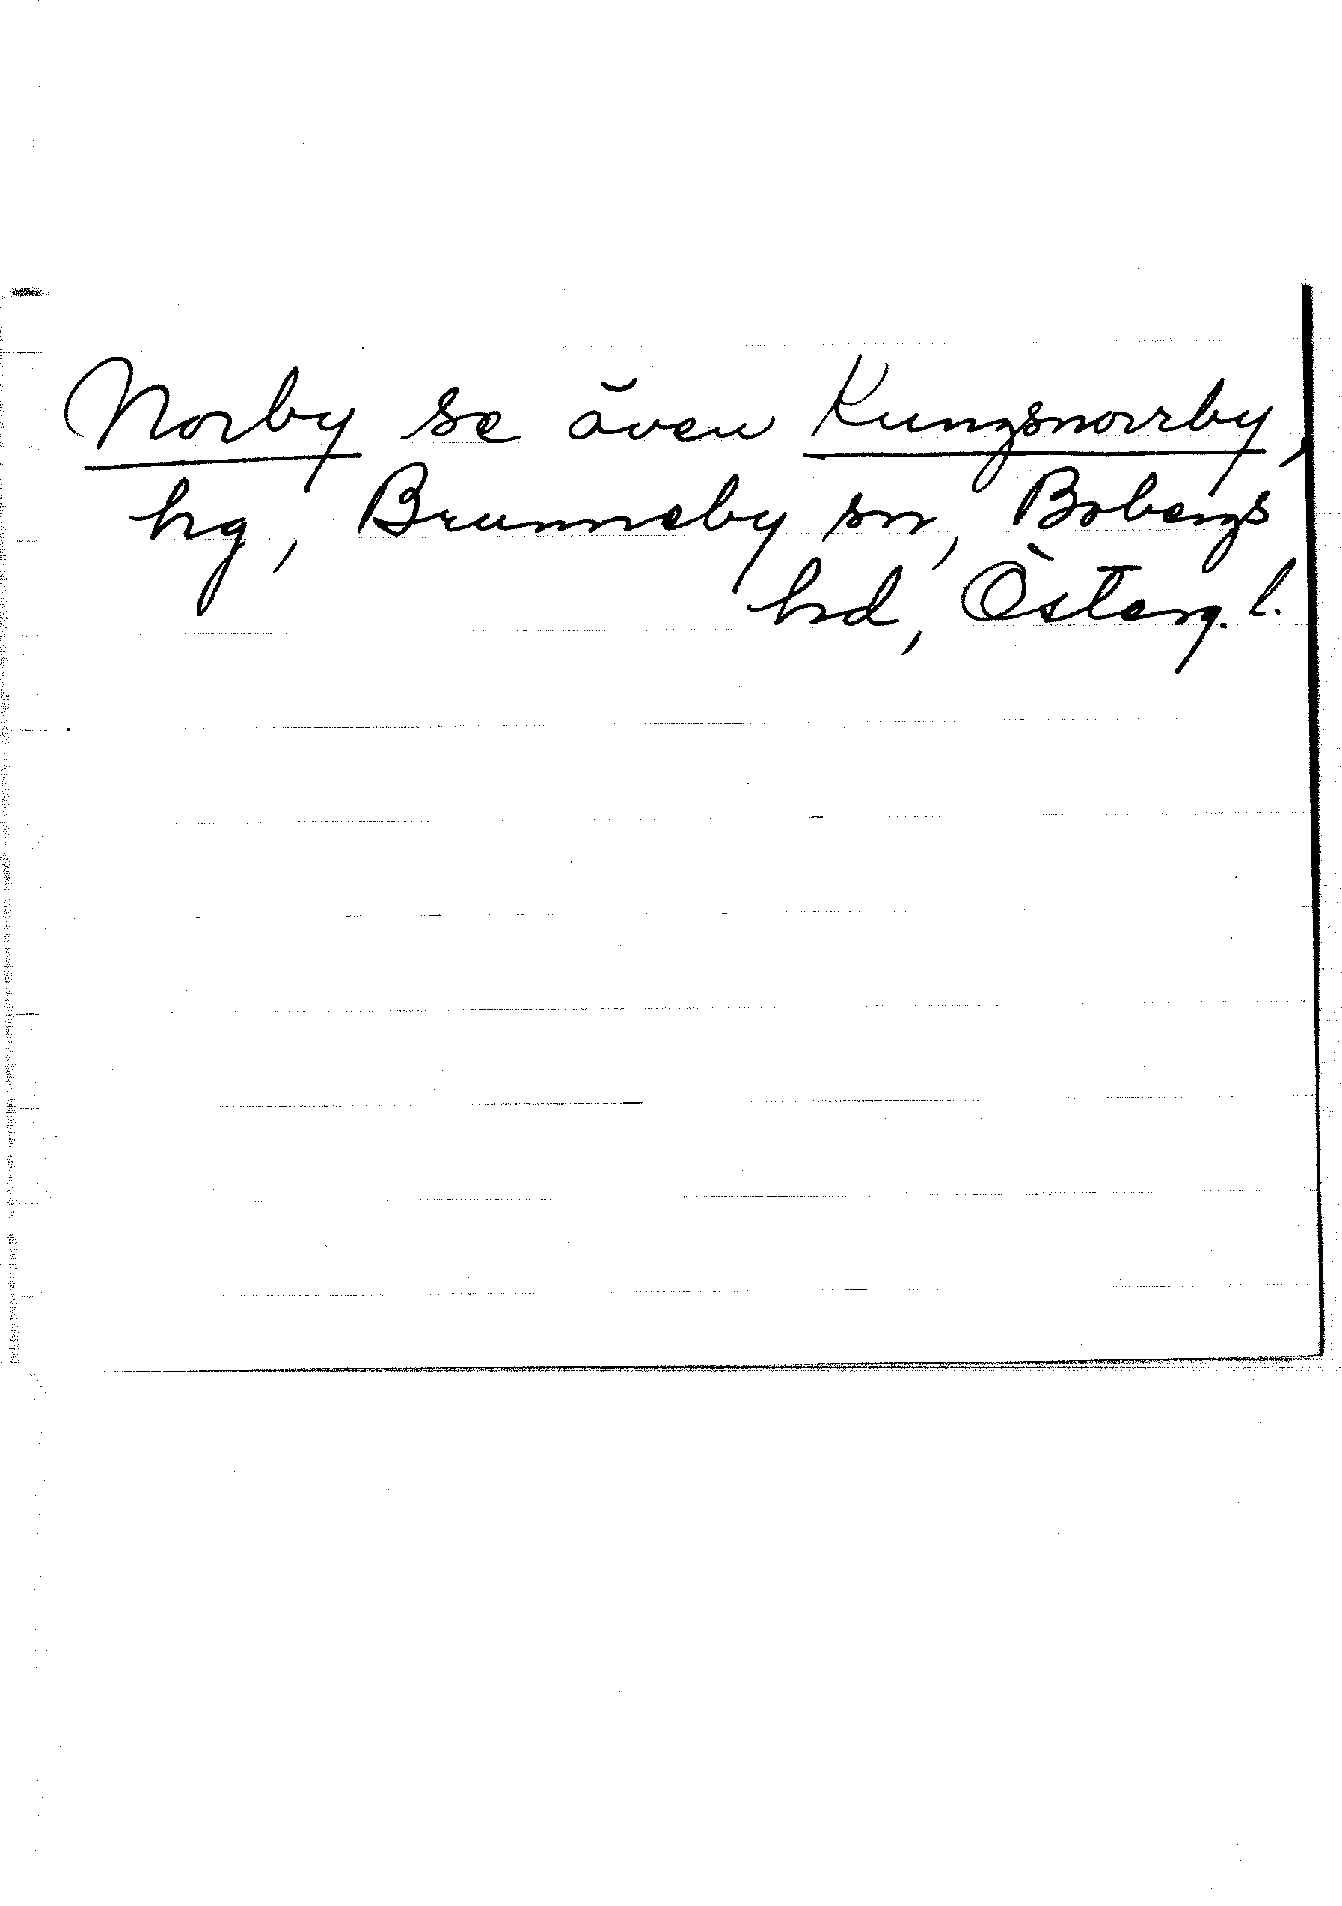 Norby se även Kungsnorrby,
hg, Brunneby sn, Bobergs
hd, Österg. l.